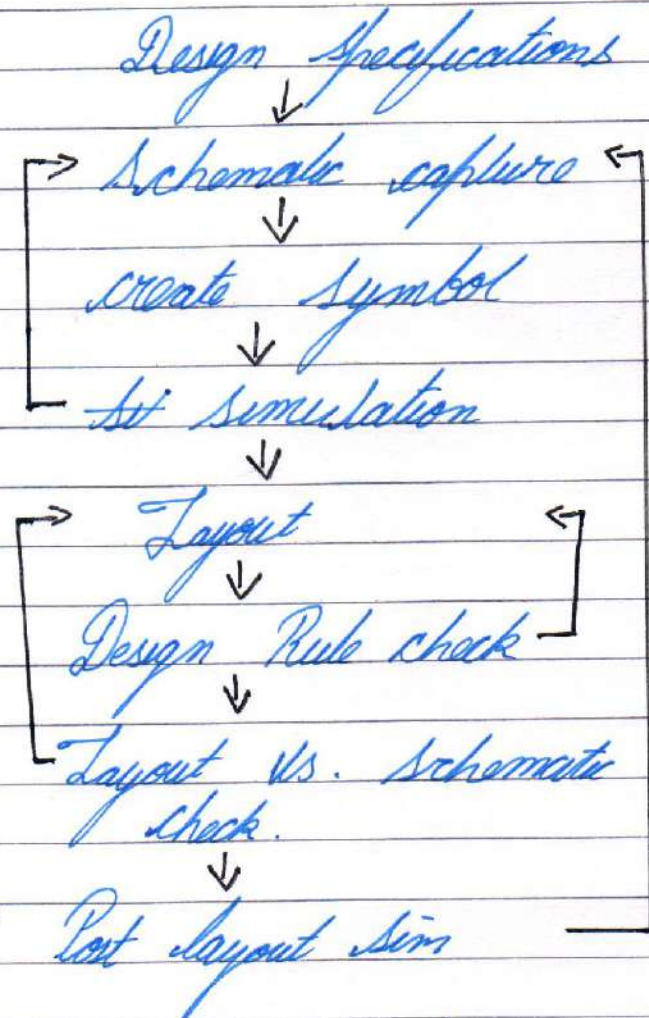 Design Specifications
Schematic capture
create Symbol
Simulation
Layout
Design Rule check
Layout Vs. Schematic
check.
Post layout sim